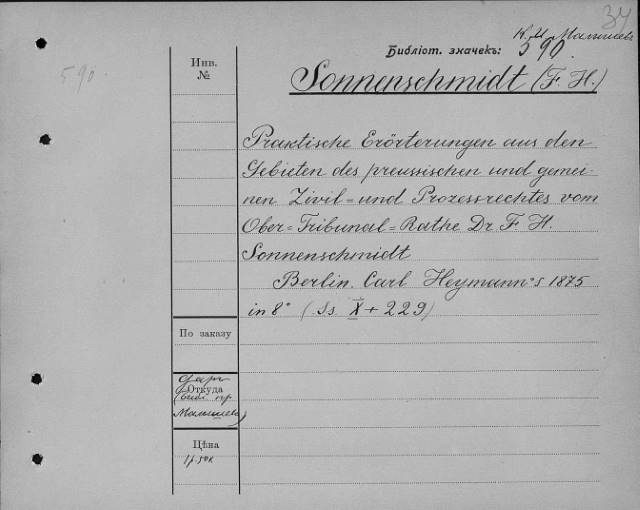 34
К. И. Малышев
Библіот. значекъ:
590.
590.
Инв.
№
Sonnenschmidt (F. H.)
Praktische Erörterungen aus den
Gebieten des preussischen und gemei-
nen Zivil= und Prozessrechtes vom
Ober=Tribunal=Rathe Dr. F. H.
Sonnenschmidt
Berlin. Carl Heymann's 1875
in 8° (Ss. X + 229)
По заказу
Даръ
Откуда
(библ. пр
Малышева)
Цѣна
1 р. 50 к